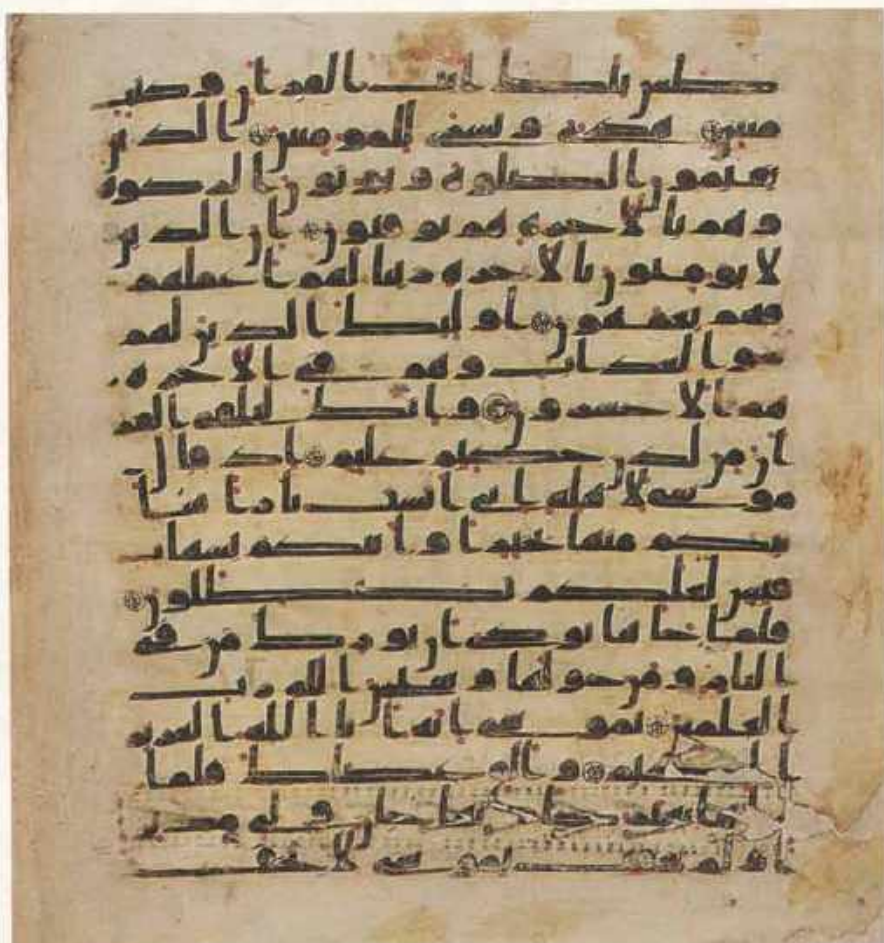 طس تلك ايت القران وكتب
مبين هدى وبشرى للمومنين الذين
يقيمون الصلوة ويوتون الزكوة
وهم بالاخرة هم يوقنون ان الذين
لا يومنون بالاخرة زينا لهم اعملهم
فهم يعمهون اوليك الذين لهم
سو العذاب وهم في الاخرة
هم الاخسرون وانك لتلقى القر
ان من لدن حكيم عليم اذ قال
موسى لاهله اني انست نارا سا
تيكم منها بخبر او اتيكم بشهاب
قبس لعلكم تصطلون
فلما جاها نودي ان بورك من في
النار ومن حولها وسبحن الله رب
العلمين يموسى انه انا الله العزيز
الحكيم والق عصاك فلما
راها تهتز كانها جان ولى مدبرا
ولم يعقب يموسى لا تخف